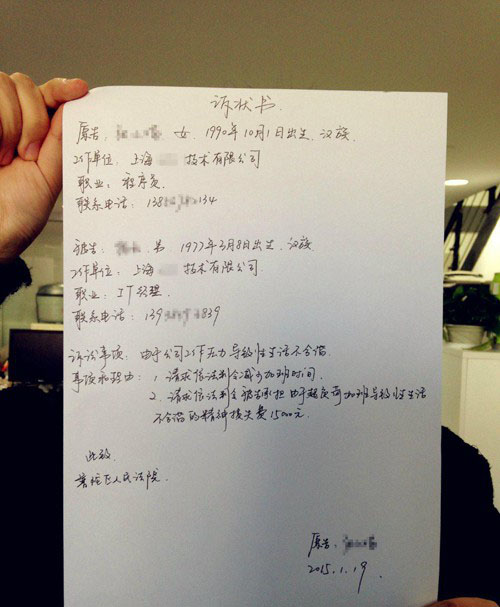 诉状书
原告: 女 1990年10月1日出生 汉族
工作单位: 上海 技术有限公司
职业: 程序员
联系电话: 138 134
被告: 男 1977年3月8日出生 汉族
工作单位: 上海 技术有限公司
职业: IT经理
联系电话: 139 839
诉讼事项: 由于公司工作压力导致性生活不合谐
事项和理由: 1、请求依法判令减少加班时间.
2、请求依法判令被告承担由于超负荷加班导致性生活
不合谐的精神损失费15000元.
此致
普陀区人民法院.
原告:
2015.1.19.